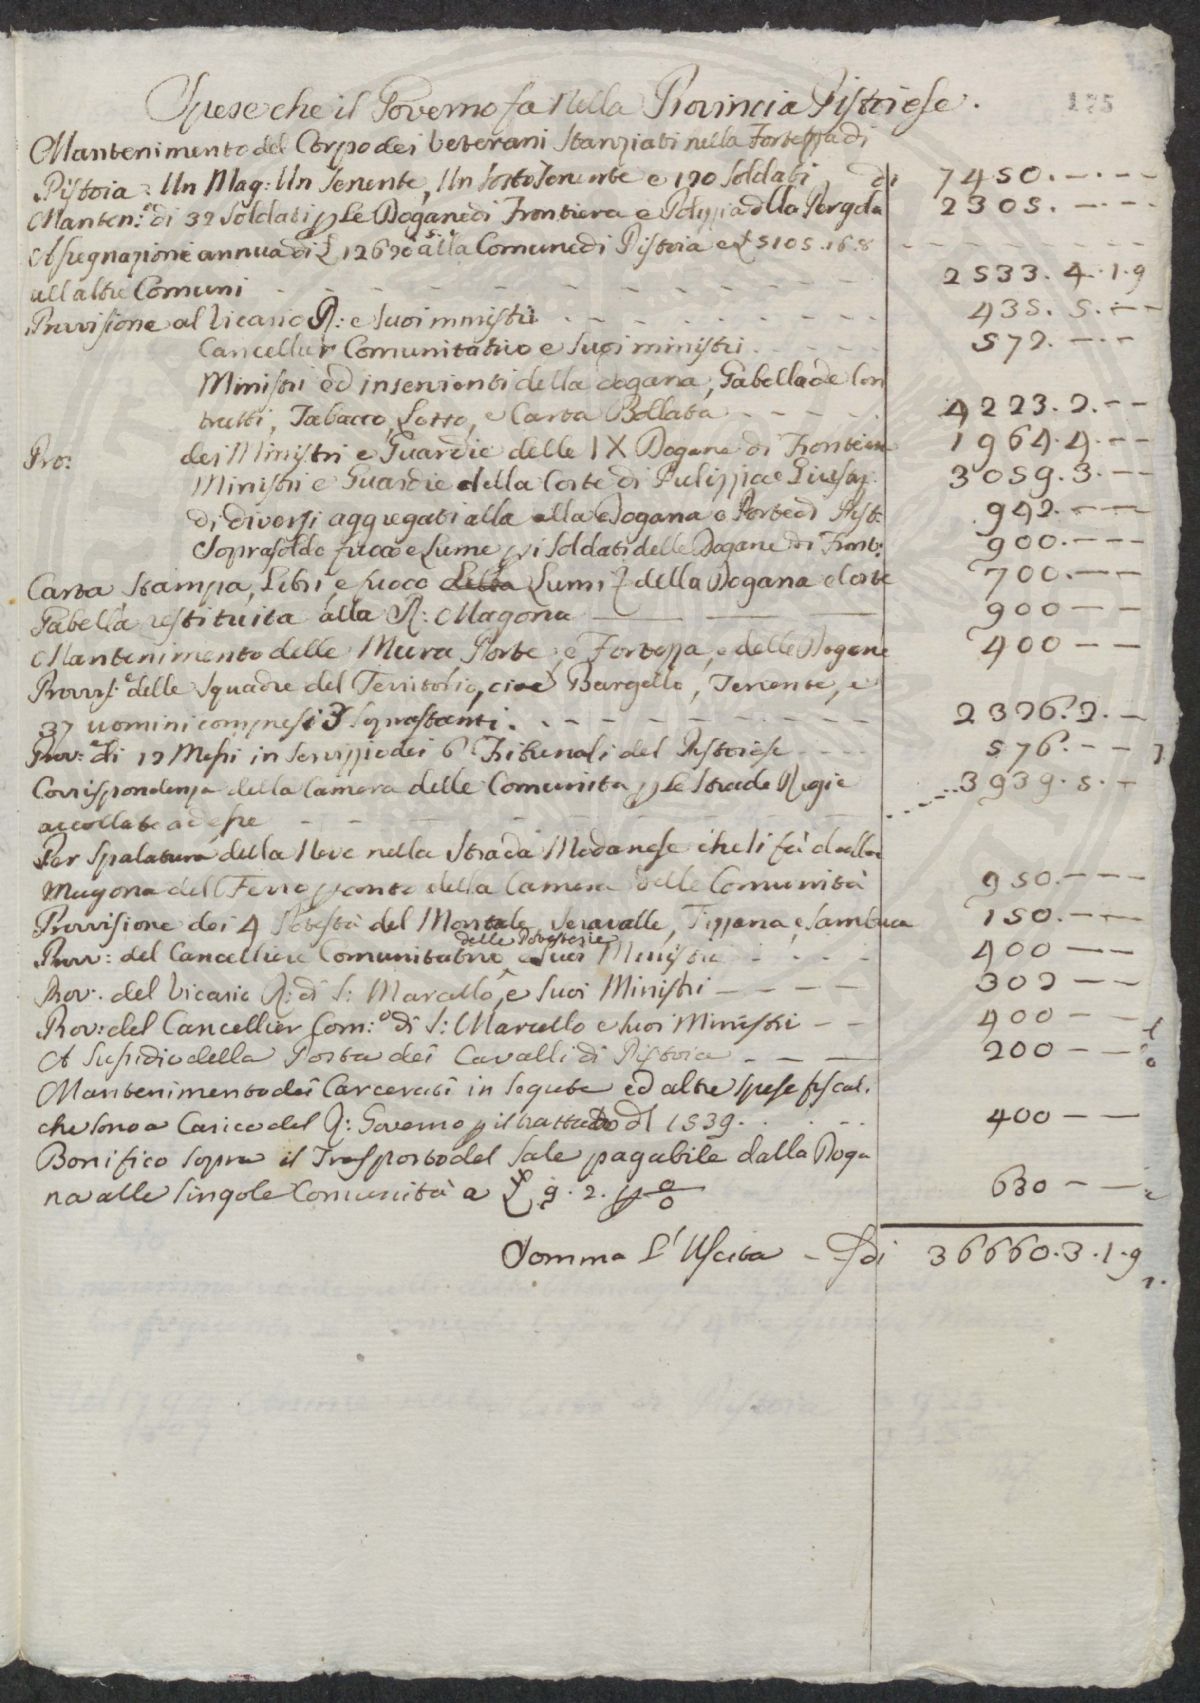 175
Spese che il Governo fa nella Provincia Pistoiese.
Mantenimento del Corpo dei Veterani Stanziati nella Fortezza di
Pistoia: Un Mag: Un Tenente, Un Sotto Tenente e 120 Soldati, di 7450.—.——
Manten:o di 32 Soldati p le Dogane di Frontiera e Polizzia dlla Pergola 2305.—.——
Assegnazione annua di £ 12690 alla Comune di Pistoia e £ 5105.16.8
all altre Comuni 2533.4.1.9
Provisione al Vicario R: e suoi ministri 435.5.——
Cancellier Comunitativo e suoi ministri 572.—.—
Ministri ed inservienti della dogana, Gabella de Con
tratti, Tabacco, Lotto, e Carta Bollata 4223.2.——
Pro: dei Ministri e Guardie delle IX Dogane di Frontiera 1964.4.——
Ministri e Guardie della Corte di Pulizzia e Giustiz: 3059.3.——
di diversi aggregati alla alla Dogana e Porte di Pist: 942.———
Soprasoldo fuoco e Lume p i Soldati delle Dogane di Front: 900.———
Carta Stampa, Libri, e fuoco della Lumi della Dogana e Corte 700.———
Gabella restituita alla R: Magona 900——
Mantenimento delle Mura Porte, e Fortezza, e delle Dogane 400——
Provvis:e delle Squadre del Territorio, cioè Bargello, Tenente, e
37 uomini compresi 3 Soprastanti. 2326.2.—
Prov:e di 12 Messi in servizzio dei 6 Tribunali del Pistoiese 576.——
Corrispondenza della Camera delle Comunita p le Strade Regie 3939.5.—
accollate ad esse
Per Spalatura della Neve nella Strada Modanese che si fà dalla
Magona del Ferro p conto della Camera delle Comunità 950.———
Provvisione dei 4 Potestà del Montale, Seravalle, Tizzana, e Sambuca 150.———
delle Potesterie
Prov: del Cancelliere Comunitativo e suoi Ministri 400——
Prov: del Vicario R: di S: Marcello, e suoi Ministri 302——
Prov: del Cancellier Com:o di S: Marcello e suoi Ministri 400——
A Sussidio della Posta dei Cavalli di Pistoia 200——
Mantenimento dei Carcerati in segrete ed altre spese fiscal.
che sono a Carico del R: Governo p il trattato dl 1539. 400——
Bonifico sopra il Trasporto del Sale pagabile dalla Doga
na alle singole Comunità a £ 9.2. p 0/0 630——
Somma L'Uscita - di 36660.3.1.9